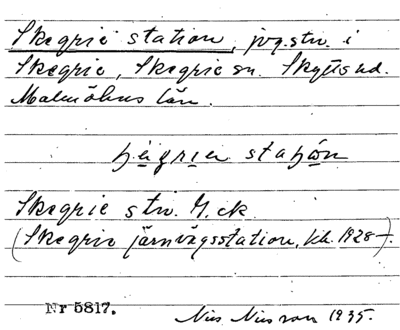 Skegrie station, jvg.stn. i
Skegrie, Skegrie sn. Skytts hd.
Malmöhus län.
stahön
Skegrie stn. G.ck
(Skegrie järnvägsstation, kh. 1928-).
Nr 5817.
Nils Nilsson 1935.